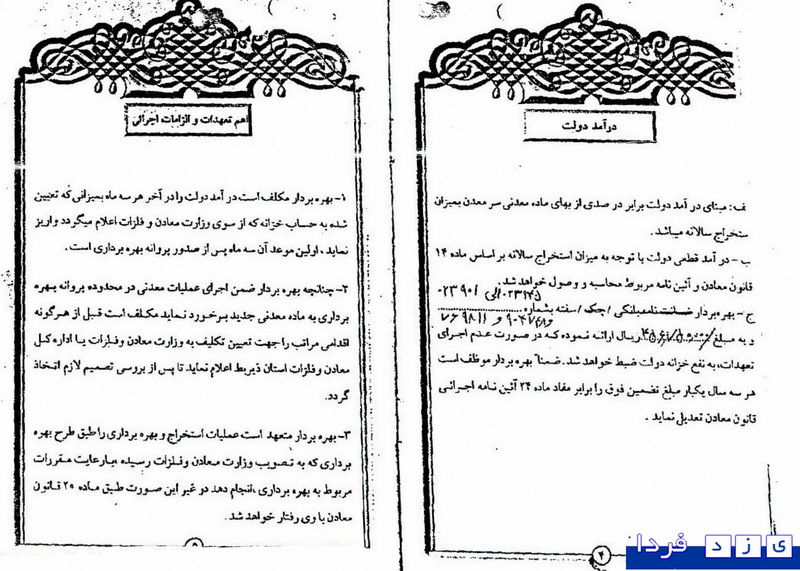 درآمد دولت
ف: مبنای در آمد دولت برابر در صدی از بهای ماده معدنی سر معدن بمیزان
ستخراج سالانه میباشد.
ب- در آمد قطعی دولت با توجه به میزان استخراج سالانه بر اساس ماده ۱۴
قانون معادن و آئین نامه مربوط محاسبه و وصول خواهد شد.
۰۲۳۱۴۵ الی ۰۲۳۹۰۱
ج- بهره بردار ضمانت نامه بانکی / چک / سفته بشماره
و به مبلغ ریال ارائه نموده که در صورت عدم اجرای
تعهدات، به نفع خزانه دولت ضبط خواهد شد. ضمناً بهره بردار موظف است
هر سه سال یکبار مبلغ تضمین فوق را برابر مفاد ماده ۲۴ آئین نامه اجرائی
قانون معادن تعدیل نماید.
۴
اهم تعهدات و الزامات اجرائی
۱- بهره بردار مکلف است در آمد دولت را در آخر هر سه ماه بمیزانی که تعیین
شده به حساب خزانه که از سوی وزارت معادن و فلزات اعلام میگردد واریز
نماید، اولین موعد آن سه ماه پس از صدور پروانه بهره برداری است.
۲- چنانچه بهره بردار ضمن اجرای عملیات معدنی در محدوده پروانه بهره
برداری به ماده معدنی جدید برخورد نماید مکلف است قبل از هرگونه
اقدامی مراتب را جهت تعیین تکلیف به وزارت معادن و فلزات یا اداره کل
معادن و فلزات استان ذیربط اعلام نماید تا پس از بررسی تصمیم لازم اتخاذ
گردد.
۳- بهره بردار متعهد است عملیات استخراج و بهره برداری را طبق طرح بهره
برداری که به تصویب وزارت معادن و فلزات رسیده، با رعایت مقررات
مربوط به بهره برداری انجام دهد در غیر این صورت طبق ماده ۲۵ قانون
معادن با وی رفتار خواهد شد.
۵
یزد فردا